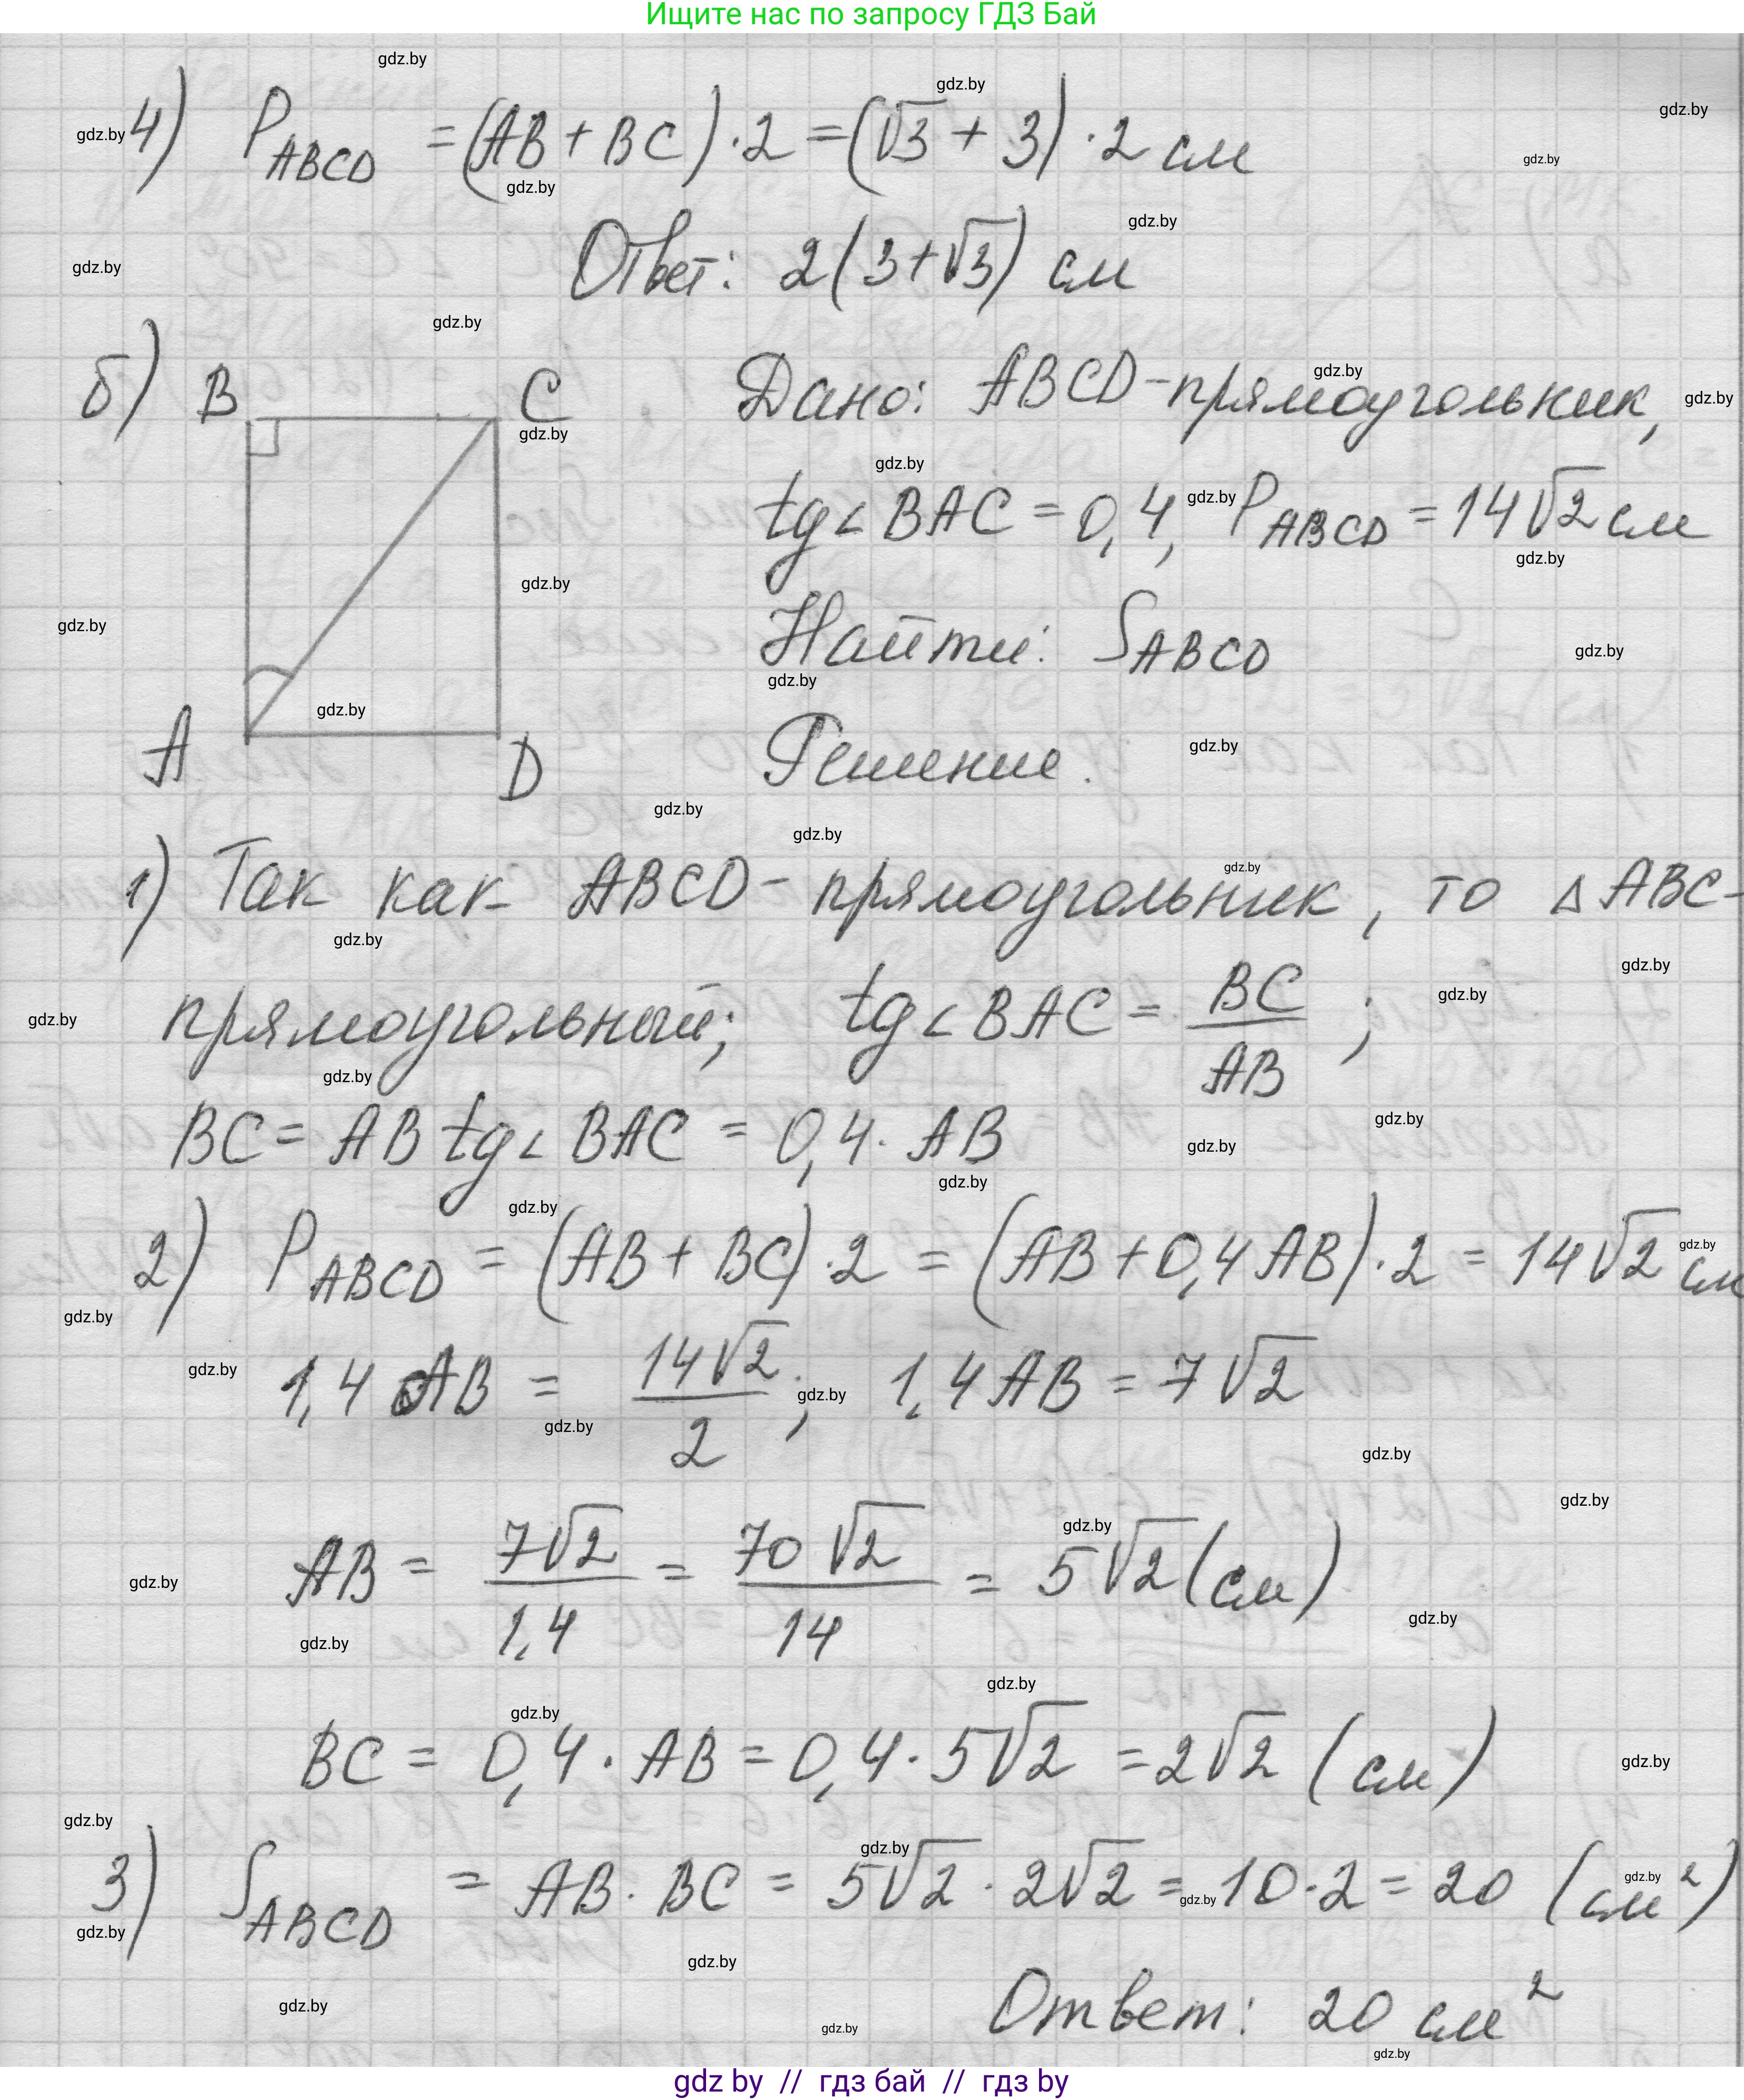 Ищите нас по запросу ГДЗ Бай
4) P_ABCD = (AB + BC) · 2 = (√3 + 3) · 2 см
Ответ: 2(3+√3) см
б) B C
A D
Дано: ABCD - прямоугольник,
tg∠BAC = 0,4, P_ABCD = 14√2 см
Найти: S_ABCD
Решение.
1) Так как ABCD - прямоугольник, то △ABC -
прямоугольный; tg∠BAC = BC/AB ;
BC = AB tg∠BAC = 0,4 · AB
2) P_ABCD = (AB + BC) · 2 = (AB + 0,4 AB) · 2 = 14√2 см
1,4 AB = 14√2/2 ; 1,4 AB = 7√2
AB = 7√2/1,4 = 70√2/14 = 5√2 (см)
BC = 0,4 · AB = 0,4 · 5√2 = 2√2 (см)
3) S_ABCD = AB · BC = 5√2 · 2√2 = 10 · 2 = 20 (см²)
Ответ: 20 см²
gdz by // гдз бай // гдз by